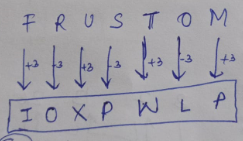 F R U S T O M
+3 -3 +3 -3 +3 -3 +3
I O X P W L P